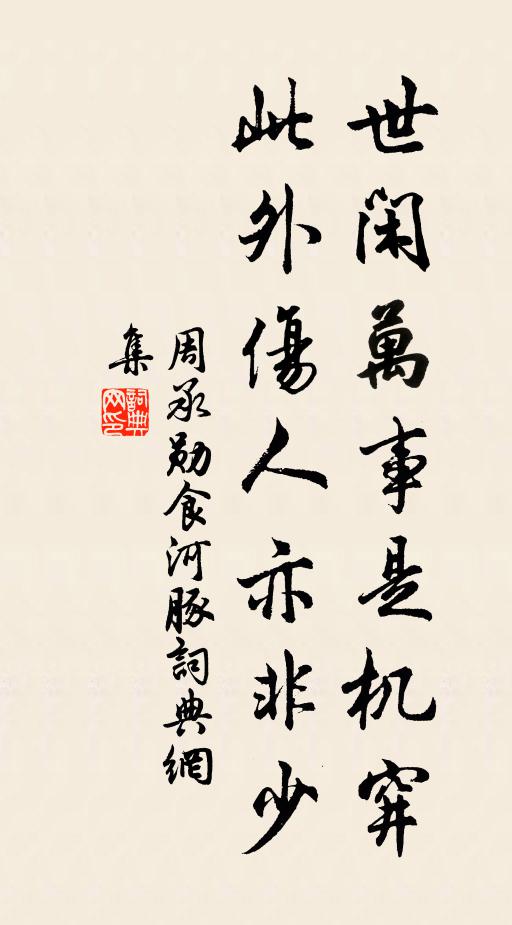 世閑萬事是机穽
此外傷人亦非少
周承勛食河豚詞典網
集
詞典網印